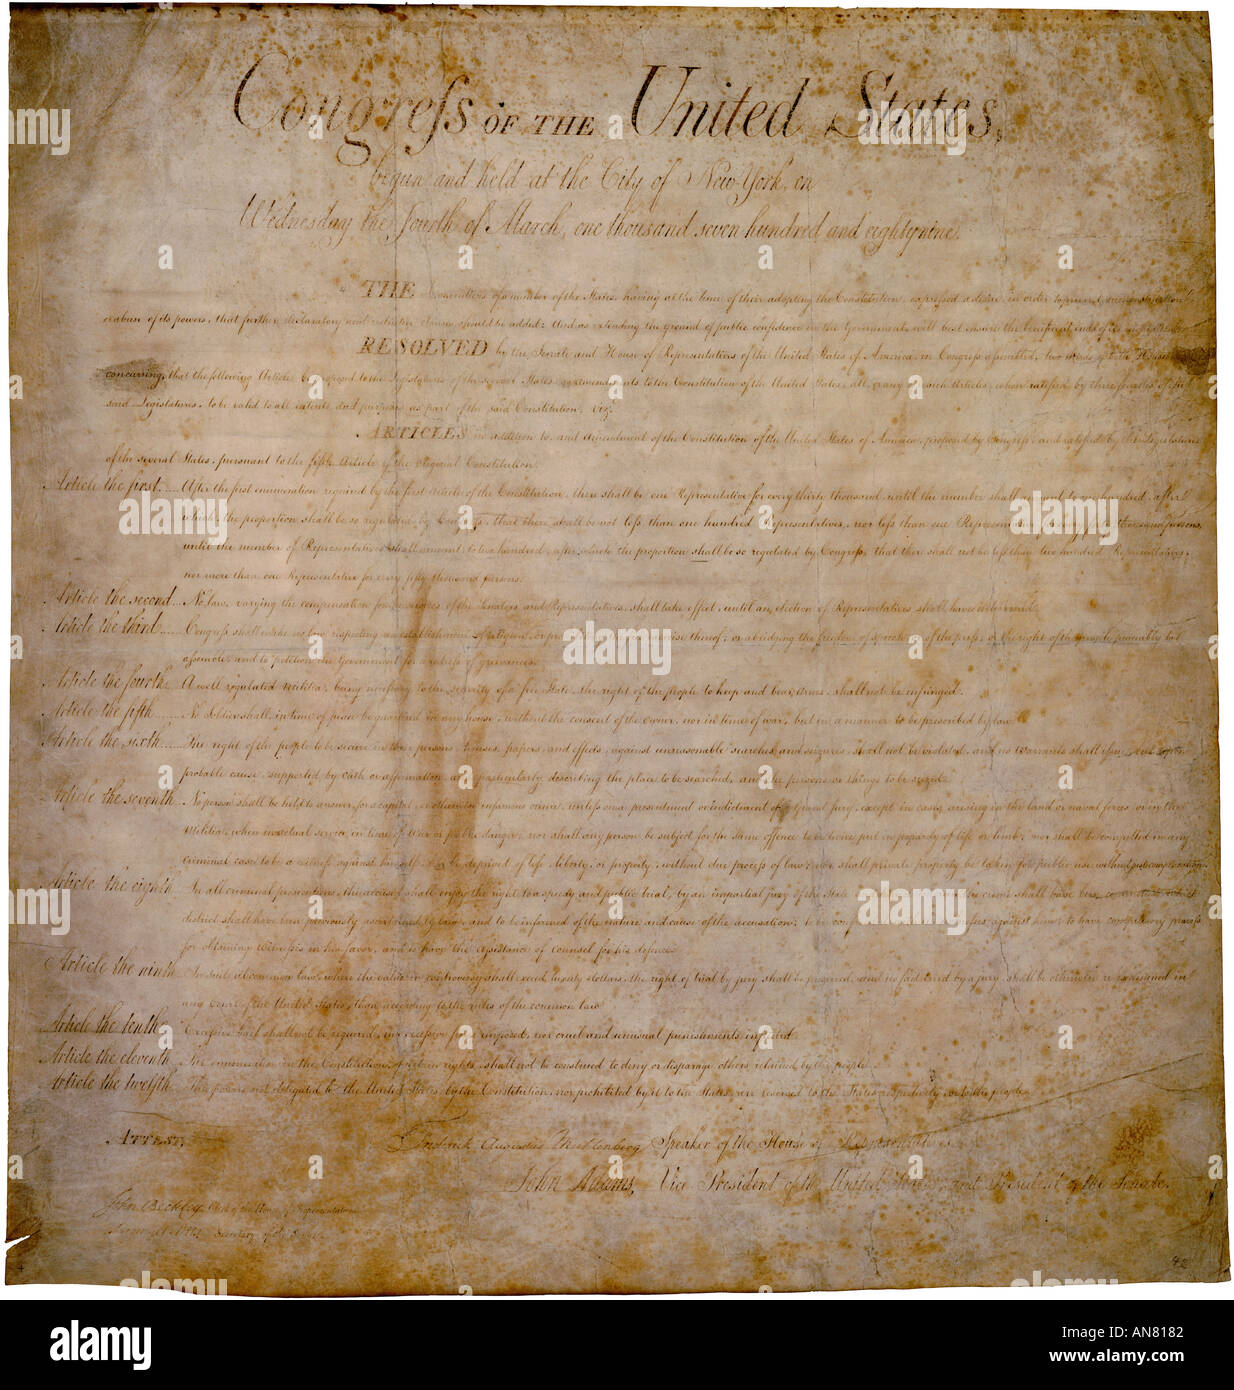 Congreſs OF THE United States,
begun and held at the City of New-York, on
Wednesday the fourth of March, one thousand seven hundred and eighty nine.
THE Conventions of a number of the States, having at the time of their adopting the Constitution, expreſsed a desire, in order to prevent misconstruction
or abuse of its powers, that further declaratory and restrictive clauses should be added: And as extending the ground of public confidence in the Government, will best ensure the beneficent ends of its institution.
RESOLVED by the Senate and House of Representatives of the United States of America, in Congreſs aſsembled, two thirds of both Houses
concurring, that the following Articles be proposed to the Legislatures of the several States, as amendments to the Constitution of the United States, all, or any of which Articles, when ratified by three fourths of the
said Legislatures, to be valid to all intents and purposes, as part of the said Constitution; viz.
ARTICLES in addition to, and Amendment of the Constitution of the United States of America, proposed by Congreſs, and ratified by the Legislatures
of the several States, pursuant to the fifth Article of the original Constitution.
Article the first..... After the first enumeration required by the first Article of the Constitution, there shall be one Representative for every thirty thousand, until the number shall amount to one hundred, after
which, the proportion shall be so regulated by Congreſs, that there shall be not leſs than one hundred Representatives, nor leſs than one Representative for every forty thousand persons,
until the number of Representatives shall amount to two hundred, after which the proportion shall be so regulated by Congreſs, that there shall not be leſs than two hundred Representatives,
nor more than one Representative for every fifty thousand persons.
Article the second... No law, varying the compensation for the services of the Senators and Representatives, shall take effect, until an election of Representatives shall have intervened.
Article the third...... Congreſs shall make no law respecting an establishment of religion, or prohibiting the free exercise thereof; or abridging the freedom of speech, or of the preſs; or the right of the people peaceably to
aſsemble, and to petition the Government for a redreſs of grievances.
Article the fourth... A well regulated Militia, being neceſsary to the security of a free State, the right of the people to keep and bear Arms, shall not be infringed.
Article the fifth..... No Soldier shall, in time of peace be quartered in any house, without the consent of the owner, nor in time of war, but in a manner to be prescribed by law.
Article the sixth..... The right of the people to be secure in their persons, houses, papers, and effects, against unreasonable searches and seizures, shall not be violated, and no warrants shall iſsue, but upon
probable cause, supported by oath or affirmation, and particularly describing the place to be searched, and the persons or things to be seized.
Article the seventh.. No person shall be held to answer for a capital, or otherwise infamous crime, unleſs on a presentment or indictment of a Grand Jury, except in cases arising in the land or naval forces, or in the
Militia, when in actual service in time of War or public danger; nor shall any person be subject for the same offence to be twice put in jeopardy of life or limb; nor shall be compelled in any
criminal case to be a witneſs against himself, nor be deprived of life, liberty, or property, without due proceſs of law; nor shall private property be taken for public use, without just compensation.
Article the eighth.. In all criminal prosecutions, the accused shall enjoy the right to a speedy and public trial, by an impartial jury of the State and district wherein the crime shall have been committed, which
district shall have been previously ascertained by law, and to be informed of the nature and cause of the accusation; to be confronted with the witneſses against him; to have compulsory proceſs
for obtaining witneſses in his favor, and to have the aſsistance of counsel for his defence.
Article the ninth.. In suits at common law, where the value in controversy shall exceed twenty dollars, the right of trial by jury shall be preserved, and no fact tried by a jury, shall be otherwise re-examined in
any Court of the United States, than according to the rules of the common law.
Article the tenth.. Exceſsive bail shall not be required, nor exceſsive fines imposed, nor cruel and unusual punishments inflicted.
Article the eleventh.. The enumeration in the Constitution, of certain rights, shall not be construed to deny or disparage others retained by the people.
Article the twelfth.. The powers not delegated to the United States by the Constitution, nor prohibited by it to the States, are reserved to the States respectively, or to the people.
ATTEST,
Frederick Augustus Muhlenberg Speaker of the House of Representatives.
John Adams, Vice President of the United States, and President of the Senate.
John Beckley, Clerk of the House of Representatives.
Sam. A. Otis Secretary of the Senate.
alamy
a
alamy stock photo
Image ID: AN8182
www.alamy.com